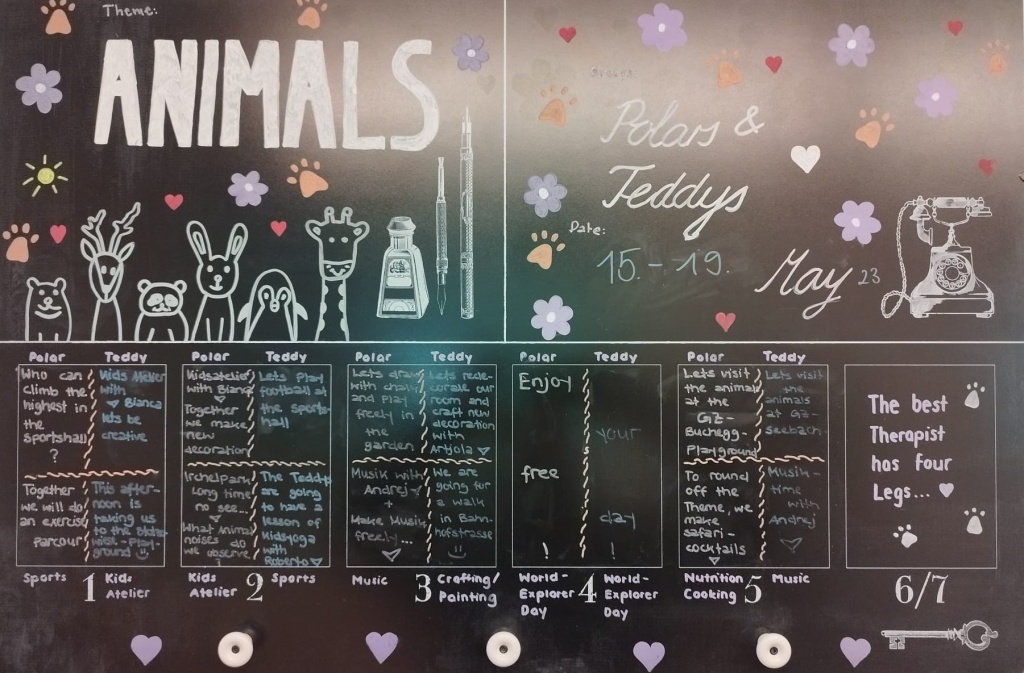 Theme:
ANIMALS
Polars &
Teddys
Date:
15. - 19. May 23
Polar
Who can
climb the
highest in
the
sportshall
?
Together
we will do
an exercise
parcour
Teddy
Kids Atelier
with
Bianca
lets be
creative
This after-
noon is
taking us
to the
-Play-
ground
Sports
1
Kids
Atelier
Polar
Kidsatelier
with Bianca
Together
we make
new
decoration
Irchelpark
long time
no see...
What animal
noises do
we observe
?
Teddy
Lets play
football at
the sports-
hall
The Teddys
are going
to have a
lesson of
Kidsyoga
with
Roberto
Kids
Atelier
2
Sports
Polar
Lets draw
with chalk
and play
freely in
the
garden
Musik with
Andrej
+
Make Musik
freely...
Teddy
Lets rede-
corate our
room and
craft new
decoration
with
Artjola
We are
going for
a walk
in Bahn-
hofstrasse
Music
3
Crafting/
Painting
Polar
Teddy
Enjoy
your
free
day
! !
World-
Explorer
Day
4
World-
Explorer
Day
Polar
Lets visit
the animals
at the
GZ-
Buchegg-
Playground
To round
off the
Theme, we
make
safari-
cocktails
Teddy
Lets visit
the
animals
at GZ-
Seebach
Musik-
time
with
Andrej
Nutrition
Cooking
5
Music
The best
Therapist
has four
Legs...
6/7